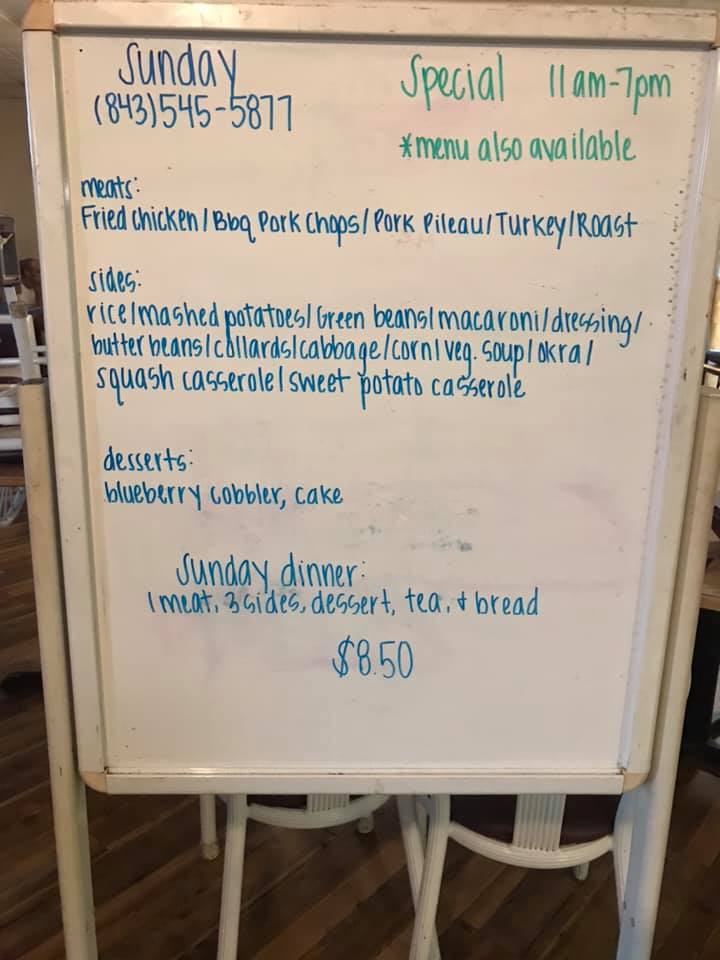 Sunday
(843)545-5877
Special 11am-7pm
*menu also available
meats:
Fried chicken/Bbq Pork Chops/Pork Pileau/Turkey/Roast
sides:
rice/mashed potatoes/Green beans/macaroni/dressing/
butter beans/collards/cabbage/corn/veg. soup/okra/
squash casserole/sweet potato casserole
desserts:
blueberry cobbler, cake
Sunday dinner:
1 meat, 3 sides, dessert, tea, & bread
$8.50